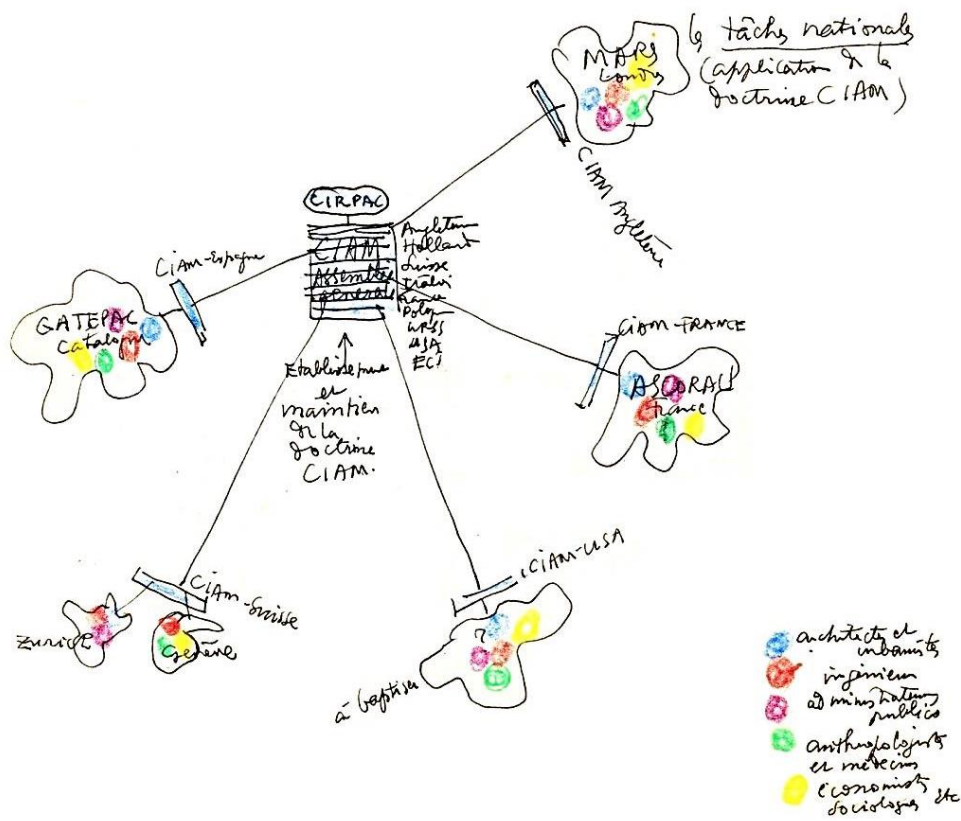 les tâches nationales
(application de la
doctrine CIAM)
MARS
Londres
CIAM Angleterre
CIRPAC
CIAM
Assemblée
générale
Angleterre
Hollande
Suisse
Italie
France
Pologne
URSS
USA
Etc
CIAM-Espagne
GATEPAC
Catalogne
CIAM-FRANCE
ASCORAL
France
et
maintien
de la
doctrine
CIAM.
CIAM-Suisse
Zurich
Genève
CIAM-USA
?
à baptiser
architectes et
urbanistes
ingénieurs
administrateurs
publics
anthropologistes
et médecins
économistes
sociologues etc